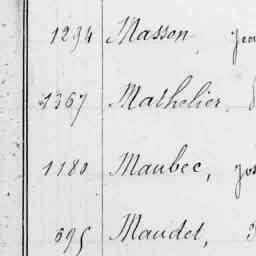 1294 Masson,
1367 Mathelier,
1180 Maubec,
695 Maudet,